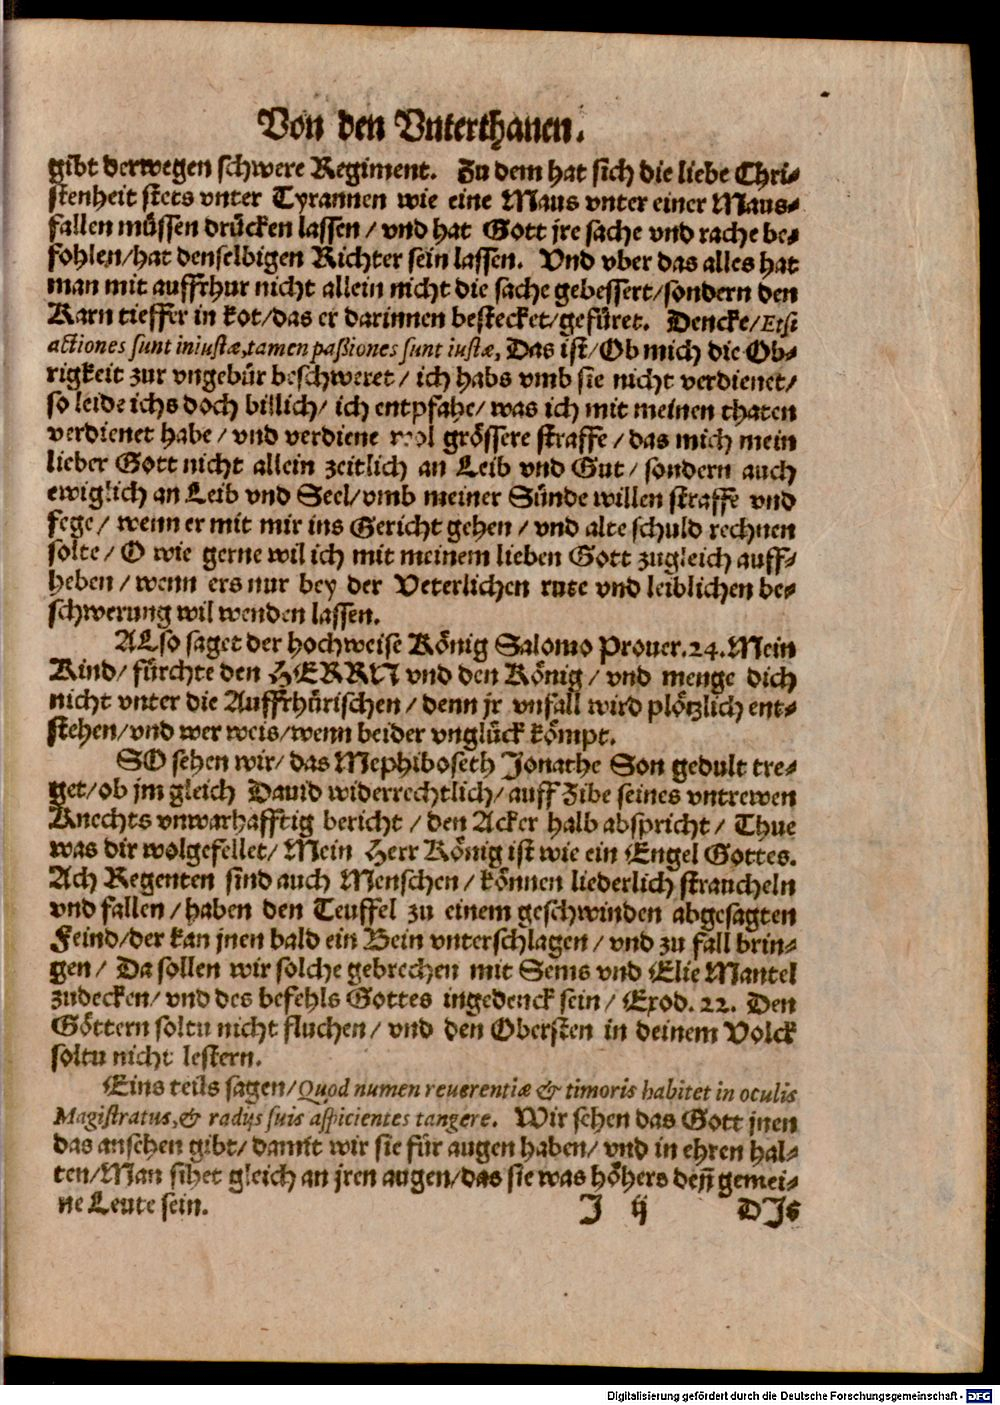 Von den Vnterthanen.
gibt derwegen schwere Regiment. Zu dem hat sich die liebe Chri-
stenheit stets vnter Tyrannen wie eine Maus vnter einer Maus-
fallen müssen drücken lassen / vnd hat Gott jre sache vnd rache be-
fohlen/hat denselbigen Richter sein lassen. Vnd vber das alles hat
man mit auffrhur nicht allein nicht die sache gebessert/sondern den
Karn tieffer in kot/das er darinnen bestecket/gefüret. Dencke/Etsi
actiones sunt iniustæ,tamen paßiones sunt iustæ, Das ist/Ob mich die Ob-
rigkeit zur vngebür beschweret / ich habs vmb sie nicht verdienet/
so leide ichs doch billich/ ich entpfahe/ was ich mit meinen thaten
verdienet habe / vnd verdiene wol grössere straffe / das mich mein
lieber Gott nicht allein zeitlich an Leib vnd Gut/ sondern auch
ewiglich an Leib vnd Seel/vmb meiner Sünde willen straffe vnd
fege/ wenn er mit mir ins Gericht gehen / vnd alte schuld rechnen
solte / O wie gerne wil ich mit meinem lieben Gott zugleich auff-
heben / wenn ers nur bey der Veterlichen rute vnd leiblichen be-
schwerung wil wenden lassen.
ALso saget der hochweise König Salomo Prouer.24.Mein
Kind/ fürchte den HERRN vnd den König / vnd menge dich
nicht vnter die Auffrhürischen / denn jr vnfall wird plötzlich ent-
stehen/vnd wer weis/wenn beider vnglück kömpt.
SO sehen wir/ das Mephiboseth Jonathe Son gedult tre-
get/ob jm gleich Dauid widerrechtlich/ auff Zibe seines vntrewen
Knechts vnwarhafftig bericht / den Acker halb abspricht / Thue
was dir wolgefellet/ Mein Herr König ist wie ein Engel Gottes.
Ach Regenten sind auch Menschen / können liederlich straucheln
vnd fallen / haben den Teuffel zu einem geschwinden abgesagten
Feind/der kan jnen bald ein Bein vnterschlagen / vnd zu fall brin-
gen / Da sollen wir solche gebrechen mit Sems vnd Elie Mantel
zudecken/ vnd des befehls Gottes ingedenck sein / Exod. 22. Den
Göttern soltu nicht fluchen/ vnd den Obersten in deinem Volck
soltu nicht lestern.
Eins teils sagen/Quod numen reuerentiæ & timoris habitet in oculis
Magistratus,& radijs suis aspicientes tangere. Wir sehen das Gott jnen
das ansehen gibt/ damit wir sie für augen haben/ vnd in ehren hal-
ten/Man sihet gleich an jren augen/das sie was höhers deñ gemei-
ne Leute sein.
J ij DJs
Digitalisierung gefördert durch die Deutsche Forschungsgemeinschaft - DFG